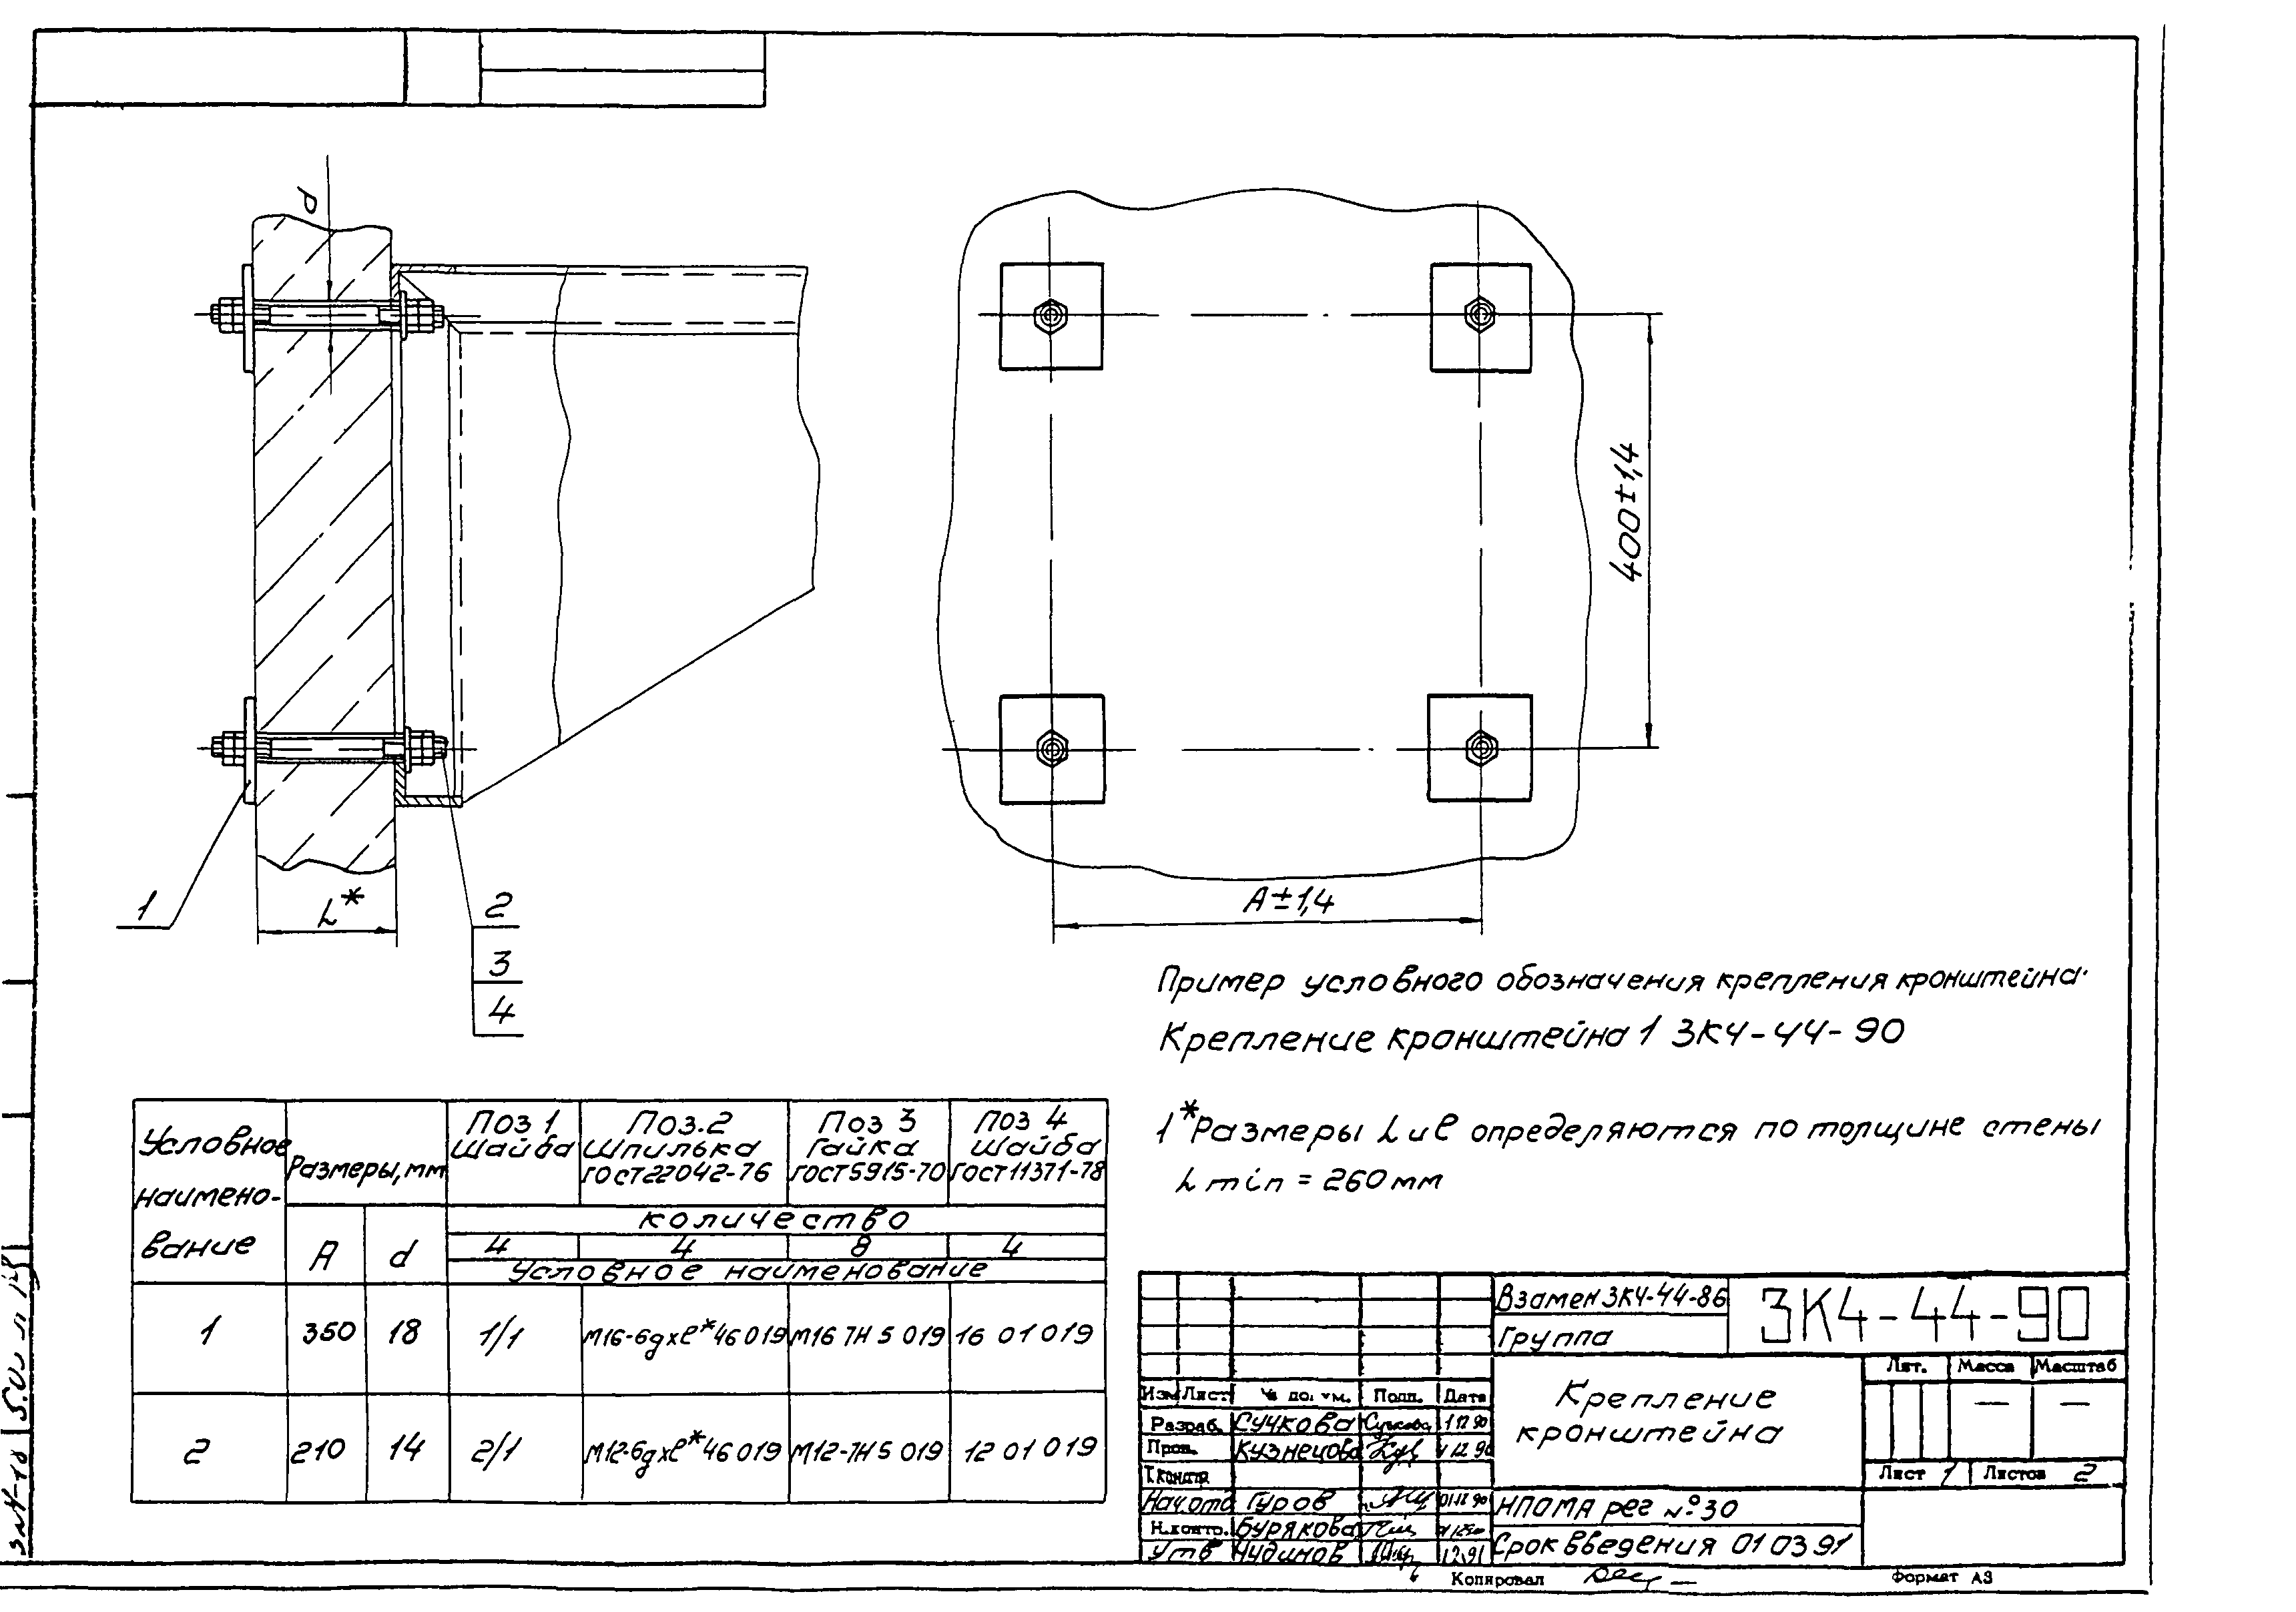 d
400±1,4
А±1,4
L*
1
2
3
4
Пример условного обозначения крепления кронштейна:
Крепление кронштейна 1 ЗК4-44-90
1*Размеры L и ℓ определяются по толщине стены
L min = 260 мм
Условное наименование
Размеры, мм
Поз 1 Шайба
Поз.2 Шпилька ГОСТ 22042-76
Поз 3 Гайка ГОСТ 5915-70
Поз 4 Шайба ГОСТ 11371-78
количество
А d 4 4 8 4
Условное наименование
1 350 18 1/1 М16-6gxℓ*46 019 М16 7Н 5 019 16 01 019
2 210 14 2/1 М12-6gxℓ*46 019 М12-7Н 5 019 12 01 019
Взамен ЗК4-44-86
ЗК4-44-90
Группа
Лит. Масса Масштаб
Изм Лист № докум. Подп. Дата
Крепление
кронштейна
— —
Разраб. Сучкова Сучкова 1 12 90
Пров. Кузнецова 12 90
Т.контр
Лист 1 Листов 2
Нач.отд Гуров 01.12 90
НПОМА рег №30
Н.контр. Бурякова
Срок введения 01 03 91
Утв Чудинов 12.91
Копировал
Формат А3